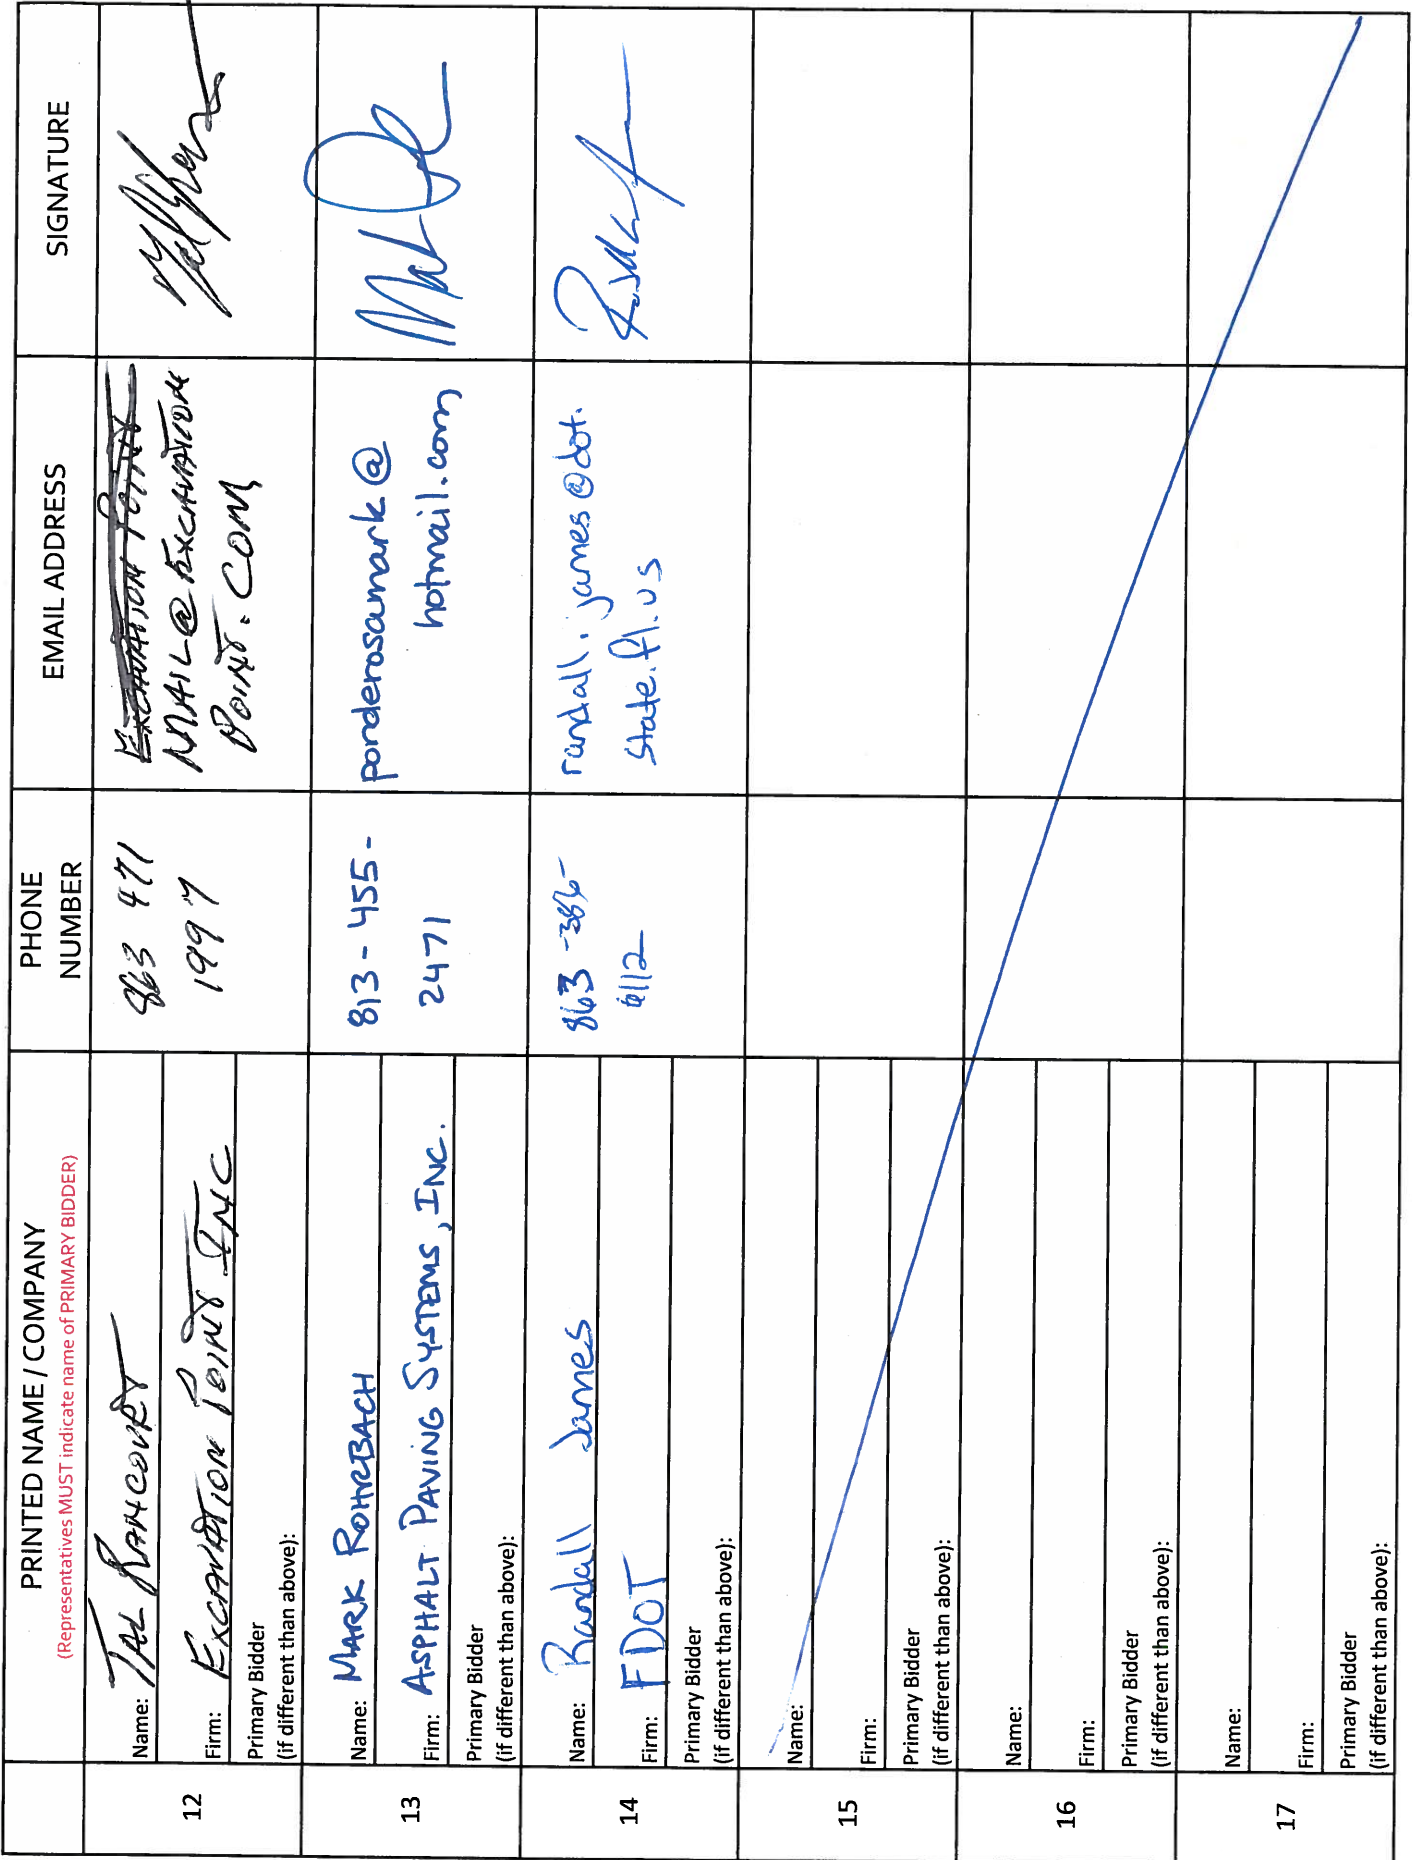 PRINTED NAME / COMPANY
(Representatives MUST indicate name of PRIMARY BIDDER)
PHONE
NUMBER
EMAIL ADDRESS
SIGNATURE
12
Name: TAL RANCOURT
Firm: EXCAVATION POINT INC
Primary Bidder
(if different than above):
863 471
1997
EXCAVATION POINT
MAIL@EXCAVATION
POINT.COM
13
Name: MARK ROHRBACH
Firm: ASPHALT PAVING SYSTEMS, INC.
Primary Bidder
(if different than above):
813-455-
2471
ponderosamark@
hotmail.com
14
Name: Randall James
Firm: FDOT
Primary Bidder
(if different than above):
863-386-
6112
randall.james@dot.
state.fl.us
15
Name:
Firm:
Primary Bidder
(if different than above):
16
Name:
Firm:
Primary Bidder
(if different than above):
17
Name:
Firm:
Primary Bidder
(if different than above):